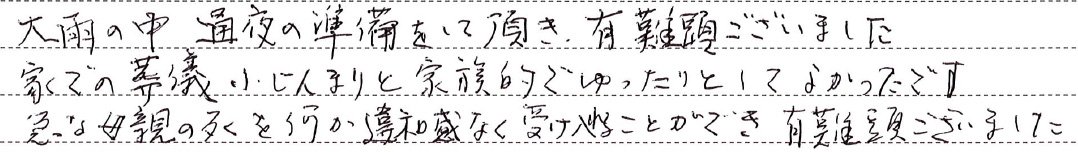 大雨の中 通夜の準備をして頂き、有難頭ございました
家での葬儀 小じんまりと家族的でゆったりとしてよかったです
急な母親の死くを何か違和感なく受け入れることができ 有難頭ございました